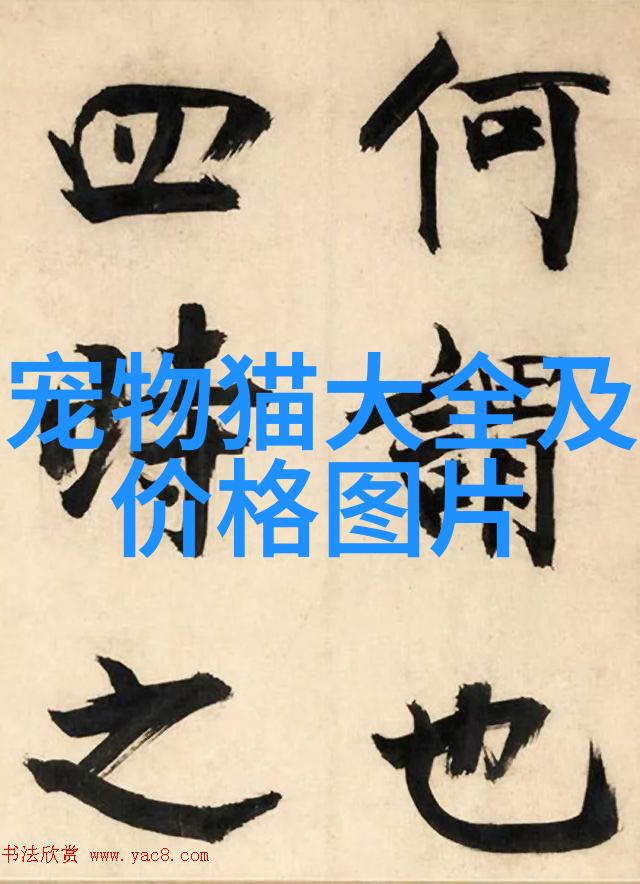 何謂也
四時之
宠物猫大全及
价格图片
书法欣赏 www.yac8.com